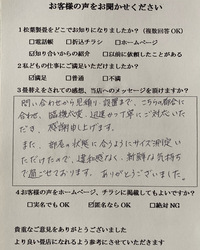 お客様の声をお聞かせください
1 松葉製畳をどこでお知りになりましたか?(複数回答 OK)
□電話帳 □折込チラシ □ホームページ
☑知り合いからの紹介 □以前に依頼したことがある
2 私どもの仕事にご満足いただけましたか?
☑満足 □普通 □不満
3 畳替えをされての感想、当店へのメッセージを頂けますか?
問い合わせから見積り、設置まで、こちらの都合に
合わせ、臨機応変、迅速かつ丁寧にご対応いただ
き、感謝申し上げます。
また、部屋の状態に合うようにサイズ測定い
ただけたので、違和感なく、新鮮な気持ち
で過ごせております。ありがとうございました。
4 お客様の声をホームページ、チラシに掲載してもよいですか?
□実名でも OK ☑匿名なら OK □絶対 NG
貴重なご意見ありがとうございました
より良い畳店になれるよう参考にさせていただきます